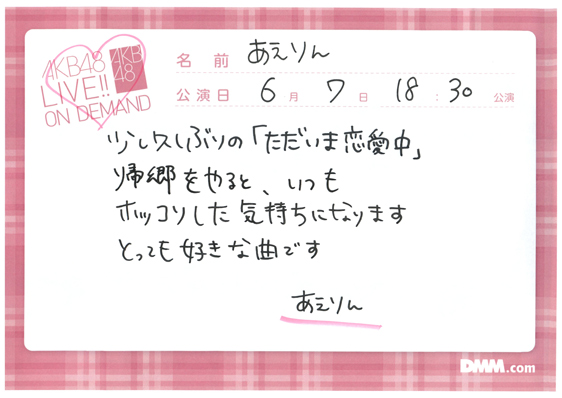 AKB48
LIVE!!
ON DEMAND
AKB
48
名前 あえりん
公演日 6月 7日 18:30公演
少し久しぶりの「ただいま恋愛中」
帰郷をやると、いつも
ホッコリした気持ちになります
とっても好きな曲です
あえりん
DMM.com